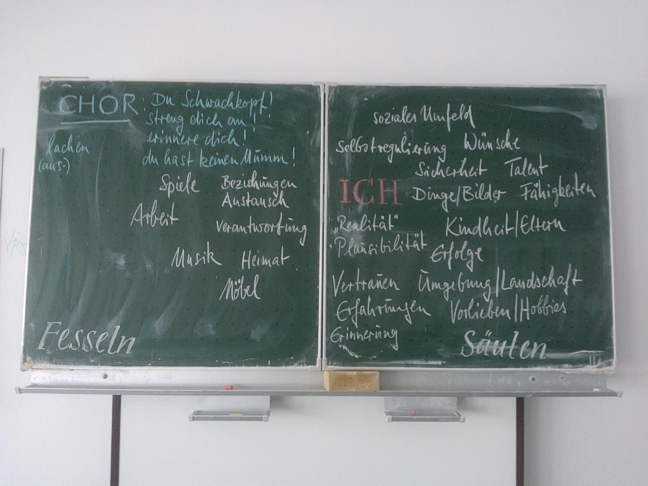 CHOR: Du Schwachkopf!
streng dich an!
erinnere dich!
lachen
(aus-)
du hast keinen Mumm!
Spiele Beziehungen
Austausch
Arbeit
Verantwortung
Musik Heimat
Möbel
Fesseln
soziales Umfeld
Selbstregulierung Wünsche
Sicherheit Talent
ICH Dinge/Bilder Fähigkeiten
„Realität“ Kindheit/Eltern
„Plausibilität Erfolge
Vertrauen Umgebung/Landschaft
Erfahrungen Vorlieben/Hobbies
Erinnerung
Säulen